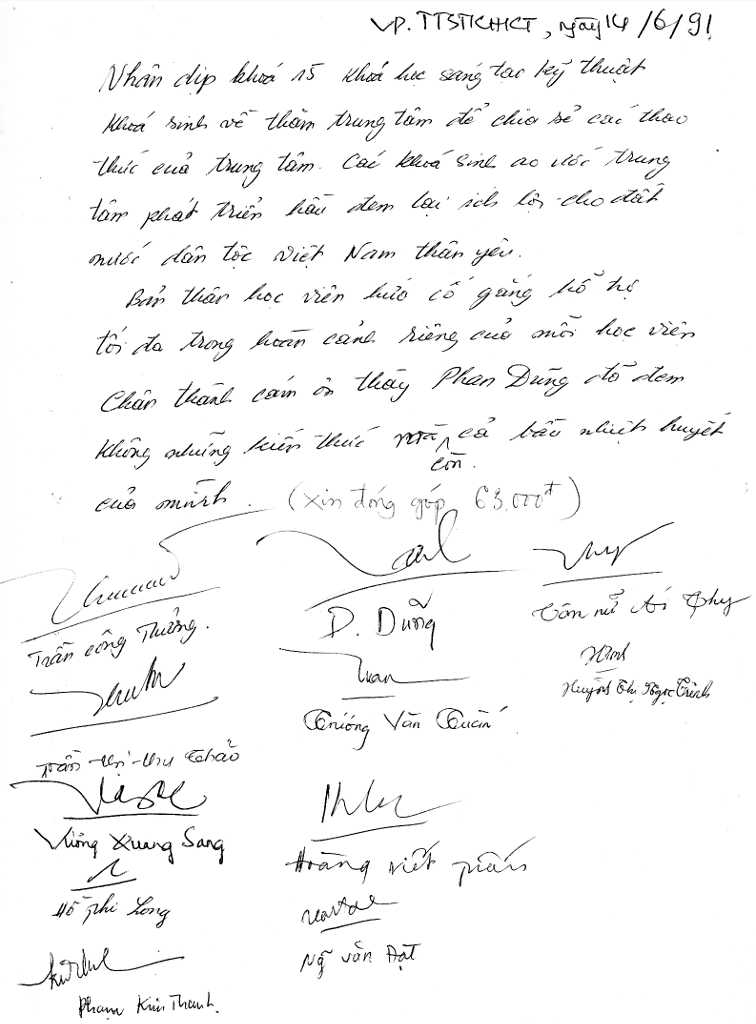 VP. TTSTKHKT, ngày 14/6/91
Nhân dịp khoá 15 khoá học sáng tạo kỹ thuật
khoá sinh về thăm trung tâm để chia sẻ các thao
thức của trung tâm. Các khoá sinh ao ước trung
tâm phát triển hầu đem lại ích lợi cho đất
nước dân tộc Việt Nam thân yêu.
Bản thân học viên hứa cố gắng hỗ trợ
tối đa trong hoàn cảnh riêng của mỗi học viên
Chân thành cám ơn thầy Phan Dũng đã đem
không những kiến thức mà còn cả bầu nhiệt huyết
của mình. (xin đóng góp 63.000đ)
Trần Công Thưởng.
D. Dũng
Văn nữ Ái Thy
Huỳnh Thị Ngọc Trinh
Trương Văn Tuấn
Trần-thị-thu Thảo
Vương Xuang Sang
Hoàng viết
Hồ Phi Long
Ng~ văn Đạt
Phạm Kim Thanh.